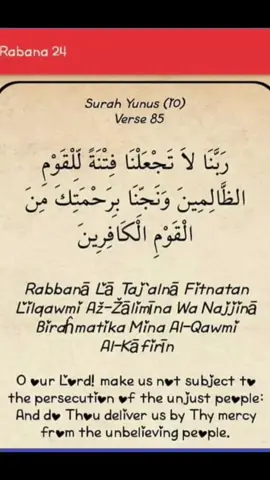 Rabana 24
Surah Yunus (10)
Verse 85
رَبَّنَا لاَ تَجْعَلْنَا فِتْنَةً لِّلْقَوْمِ
الظَّالِمِينَ وَنَجِّنَا بِرَحْمَتِكَ مِنَ
الْقَوْمِ الْكَافِرِينَ
Rabbanā Lā Taj`alnā Fitnatan
Lilqawmi Až-Žālimīna Wa Najjinā
Biraĥmatika Mina Al-Qawmi
Al-Kāfirīn
O our Lord! make us not subject to
the persecution of the unjust people:
And do Thou deliver us by Thy mercy
from the unbelieving people.